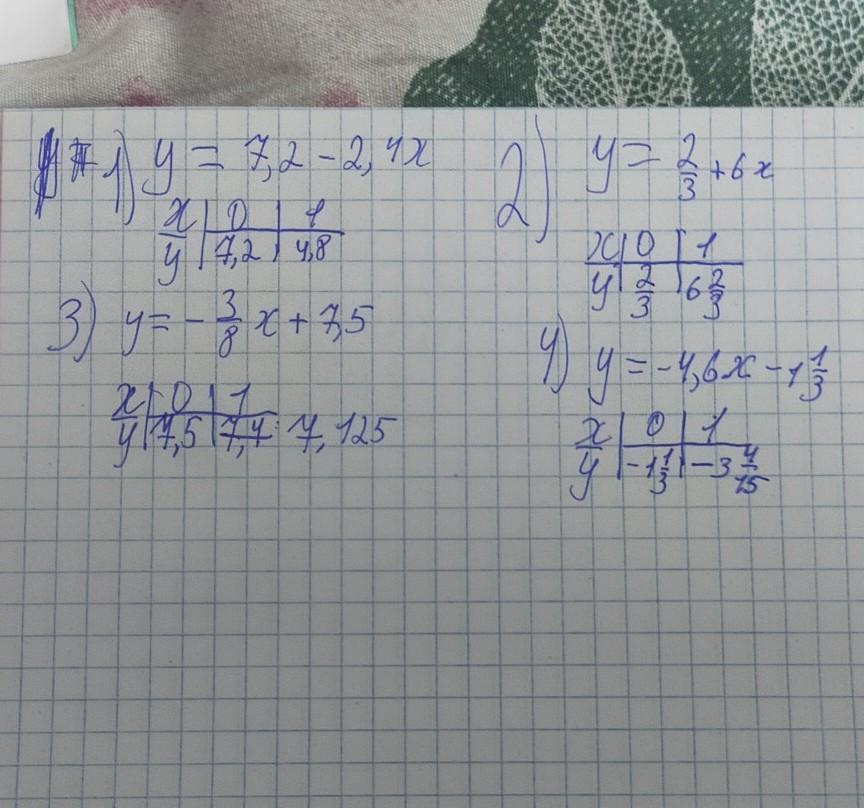 1) y = 7,2 - 2,4x
x | 0 | 1
y | 7,2 | 4,8
2) y = 2/3 + 6x
x | 0 | 1
y | 2/3 | 6 2/3
3) y = - 3/8 x + 7,5
x | 0 | 1
y | 7,5 | 7,4 7,125
4) y = -4,6x - 1 1/3
x | 0 | 1
y | -1 1/3 | -3 4/15